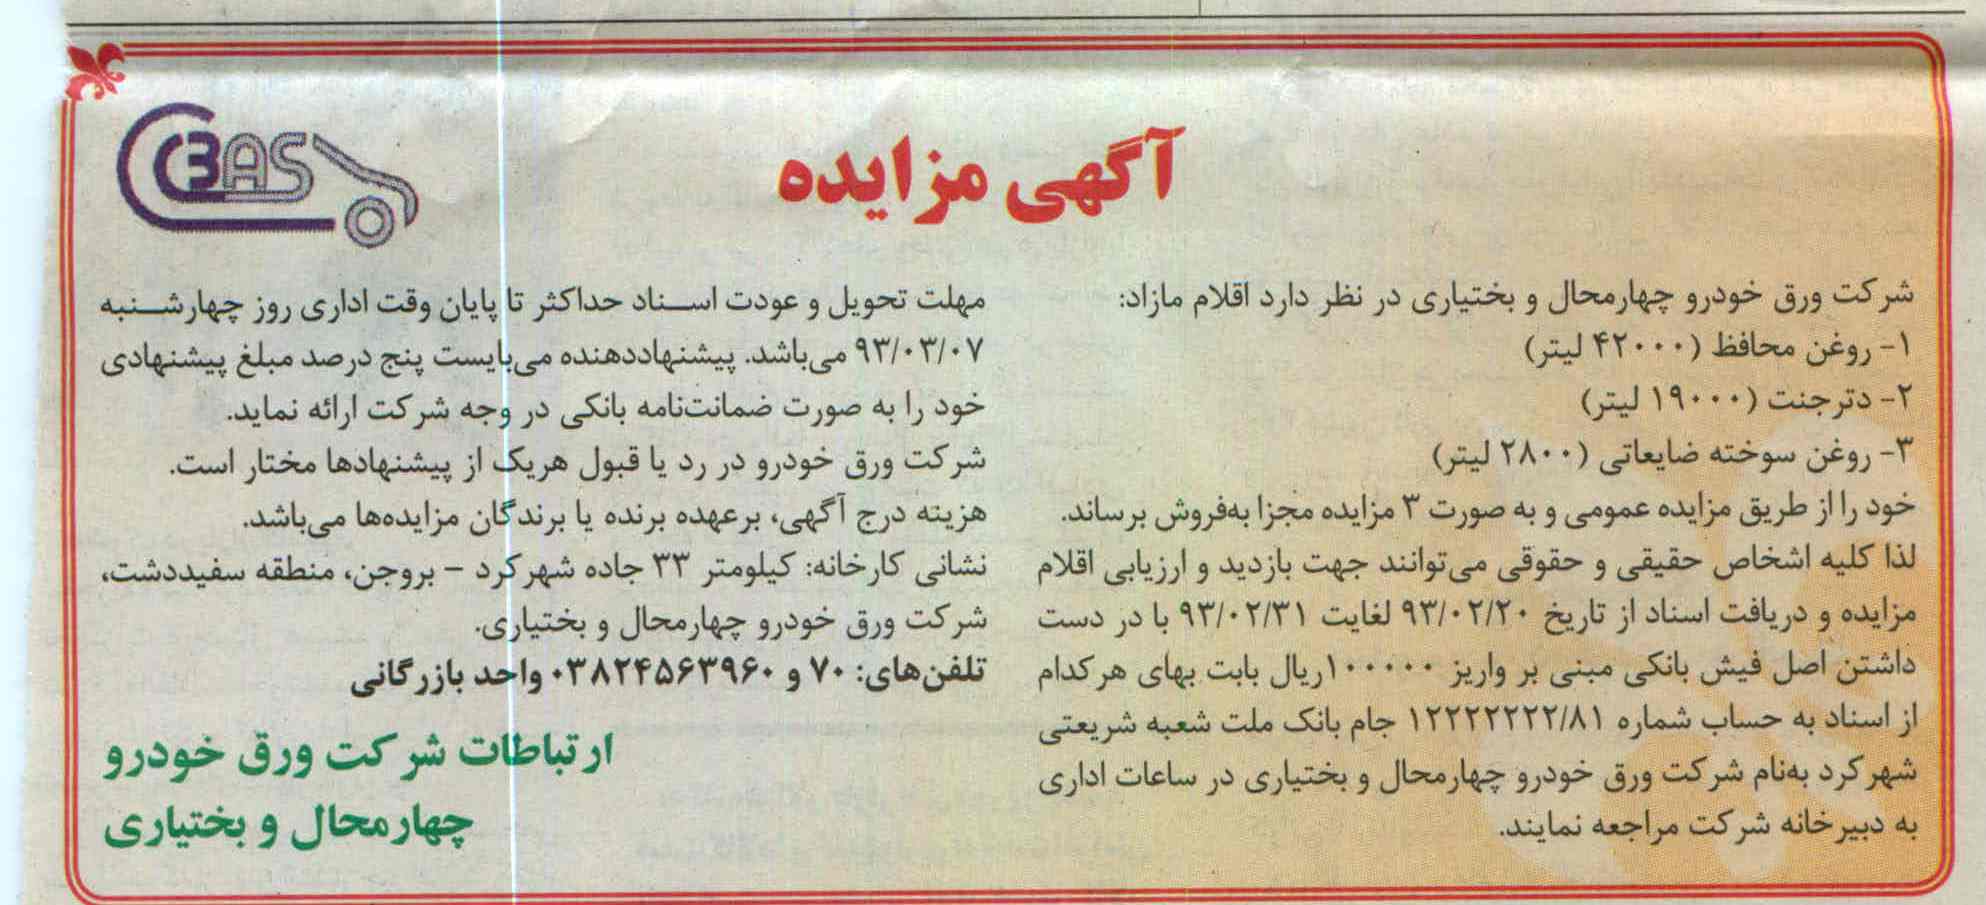 CBAS
آگهی مزایده
شرکت ورق خودرو چهارمحال و بختیاری در نظر دارد اقلام مازاد:
۱- روغن محافظ (۴۲۰۰۰ لیتر)
۲- دترجنت (۱۹۰۰۰ لیتر)
۳- روغن سوخته ضایعاتی (۲۸۰۰ لیتر)
خود را از طریق مزایده عمومی و به صورت ۳ مزایده مجزا به‌فروش برساند.
لذا کلیه اشخاص حقیقی و حقوقی می‌توانند جهت بازدید و ارزیابی اقلام
مزایده و دریافت اسناد از تاریخ ۹۳/۰۲/۲۰ لغایت ۹۳/۰۲/۳۱ با در دست
داشتن اصل فیش بانکی مبنی بر واریز ۱۰۰۰۰۰ریال بابت بهای هرکدام
از اسناد به حساب شماره ۱۲۲۲۲۲۲۲/۸۱ جام بانک ملت شعبه شریعتی
شهرکرد به‌نام شرکت ورق خودرو چهارمحال و بختیاری در ساعات اداری
به دبیرخانه شرکت مراجعه نمایند.
مهلت تحویل و عودت اسناد حداکثر تا پایان وقت اداری روز چهارشنبه
۹۳/۰۳/۰۷ می‌باشد. پیشنهاددهنده می‌بایست پنج درصد مبلغ پیشنهادی
خود را به صورت ضمانت‌نامه بانکی در وجه شرکت ارائه نماید.
شرکت ورق خودرو در رد یا قبول هریک از پیشنهادها مختار است.
هزینه درج آگهی، برعهده برنده یا برندگان مزایده‌ها می‌باشد.
نشانی کارخانه: کیلومتر ۳۳ جاده شهرکرد – بروجن، منطقه سفیددشت،
شرکت ورق خودرو چهارمحال و بختیاری.
تلفن‌های: ۷۰ و ۰۳۸۲۴۵۶۳۹۶۰ واحد بازرگانی
ارتباطات شرکت ورق خودرو
چهارمحال و بختیاری